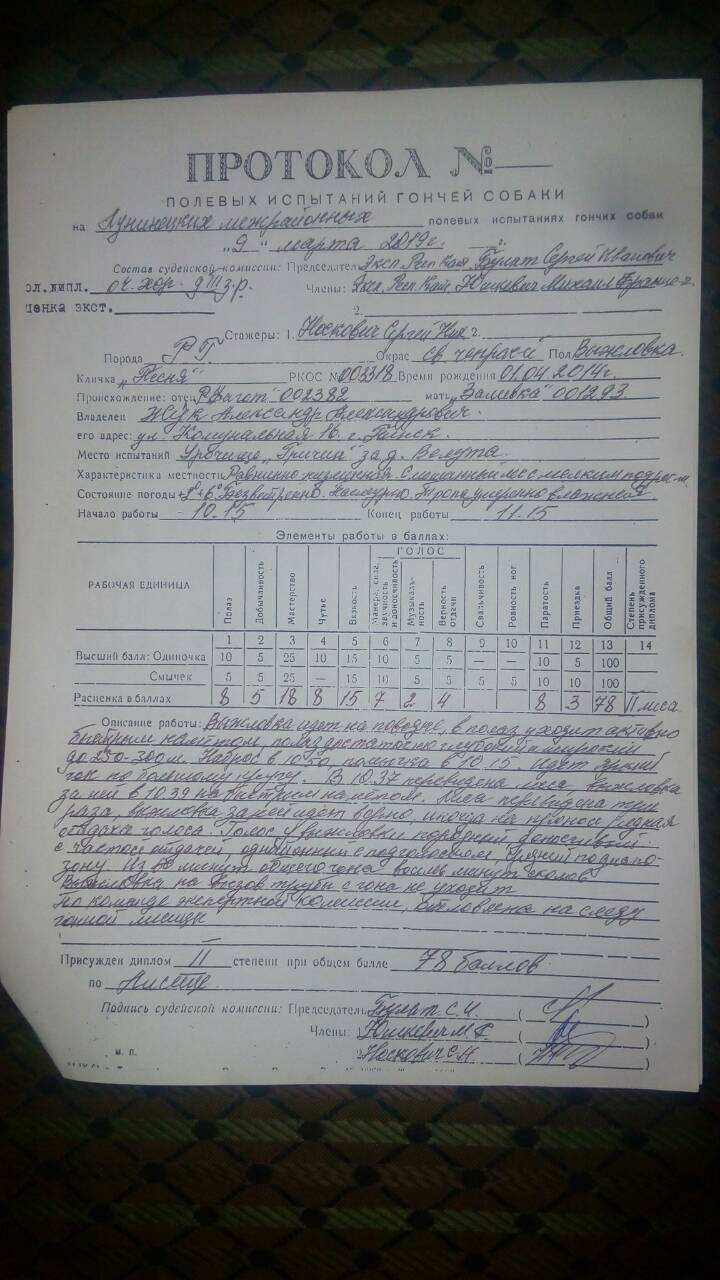 ПРОТОКОЛ №
ПОЛЕВЫХ ИСПЫТАНИЙ ГОНЧЕЙ СОБАКИ
на Лунинецких межрайонных полевых испытаниях гончих собак
„9" марта 2019г. г.
Состав судейской комиссии: Председатель Эксп. Респ. Кат. Булат Сергей Иванович
ол. дипл. оч. хор. д III з.р. Члены: Эксп. Респ. Кат. Юшкевич Михаил
ценка экст. 2.
Стажеры: 1. Носкович Сергей Ник 2.
Порода РГ. Окрас св. чепрач Пол Выжловка.
Кличка „Песня" РКОС № 003318 Время рождения 01.04 2014г.
Происхождение: отец Фагот" 002382 мать „Заливка" 001293
Владелец Жук Александр Александрович.
его адрес: ул. Комунальная 16. г.
Место испытаний Урочище „Гричин" за д. Велута.
Характеристика местности Равнинно низменная. Смешанный лес с мелким
Состояние погоды Безветренно. Пасмурно. Тропа умеренно влажная
Начало работы 10.15 Конец работы 11.15
Элементы работы в баллах:
РАБОЧАЯ ЕДИНИЦА Полаз Добычливость Мастерство Чутье Вязкость ГОЛОС Манера, сила, звучность и доносчивость Музыкальность Верность отдачи Свальчивость Ровность ног Паратость Приездка Общий балл Степень присужденного диплома
1 2 3 4 5 6 7 8 9 10 11 12 13 14
Высший балл: Одиночка 10 5 25 10 15 10 5 5 — — 10 5 100
Смычек 5 5 25 — 15 10 5 5 5 5 10 10 100
Расценка в баллах 8 5 18 8 15 7 2 4 8 3 78 II лиса
Описание работы: Выжловка идет на поводке, в полаз уходит активно
быстрым наметом, полаз достаточно глубокий и широкий
до 250-300м. Наброс в 10.50, помычка в 10.15. Идет яркий
гон по большому кругу. В 10.37 перевидена лиса, выжловка
за ней в 10.39 на быстром наметом. Лиса перевидена три
раза, выжловка за ней идет верно, иногда на проносе редкая
отдача голоса. Голос у выжловки породный доносчивый
с частой отдачей, однотонный с подголоском, средней по диапо-
зону. Из 60 минут общего гона восемь минут сколов
Выжловка на вызов трубы с гона не уходит
По команде экспертной комиссии, отловлена на следу
гонной лисицы
Присужден диплом II степени при общем балле 78 баллов
по Лисице
Подпись судейской комиссии: Председатель Булат. С.И. ( )
Члены: Юшкевич М.Ф. ( )
Носкович С.Н. ( )
м. п.